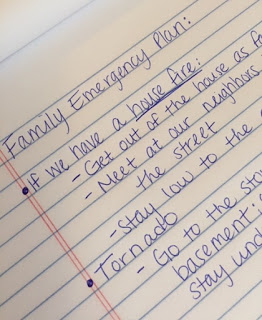 Family Emergency Plan:
• If we have a house fire:
- Get out of the house as
- Meet at our neighbors
the street
- Stay low to the
• Tornado
- Go to the
basement;
stay